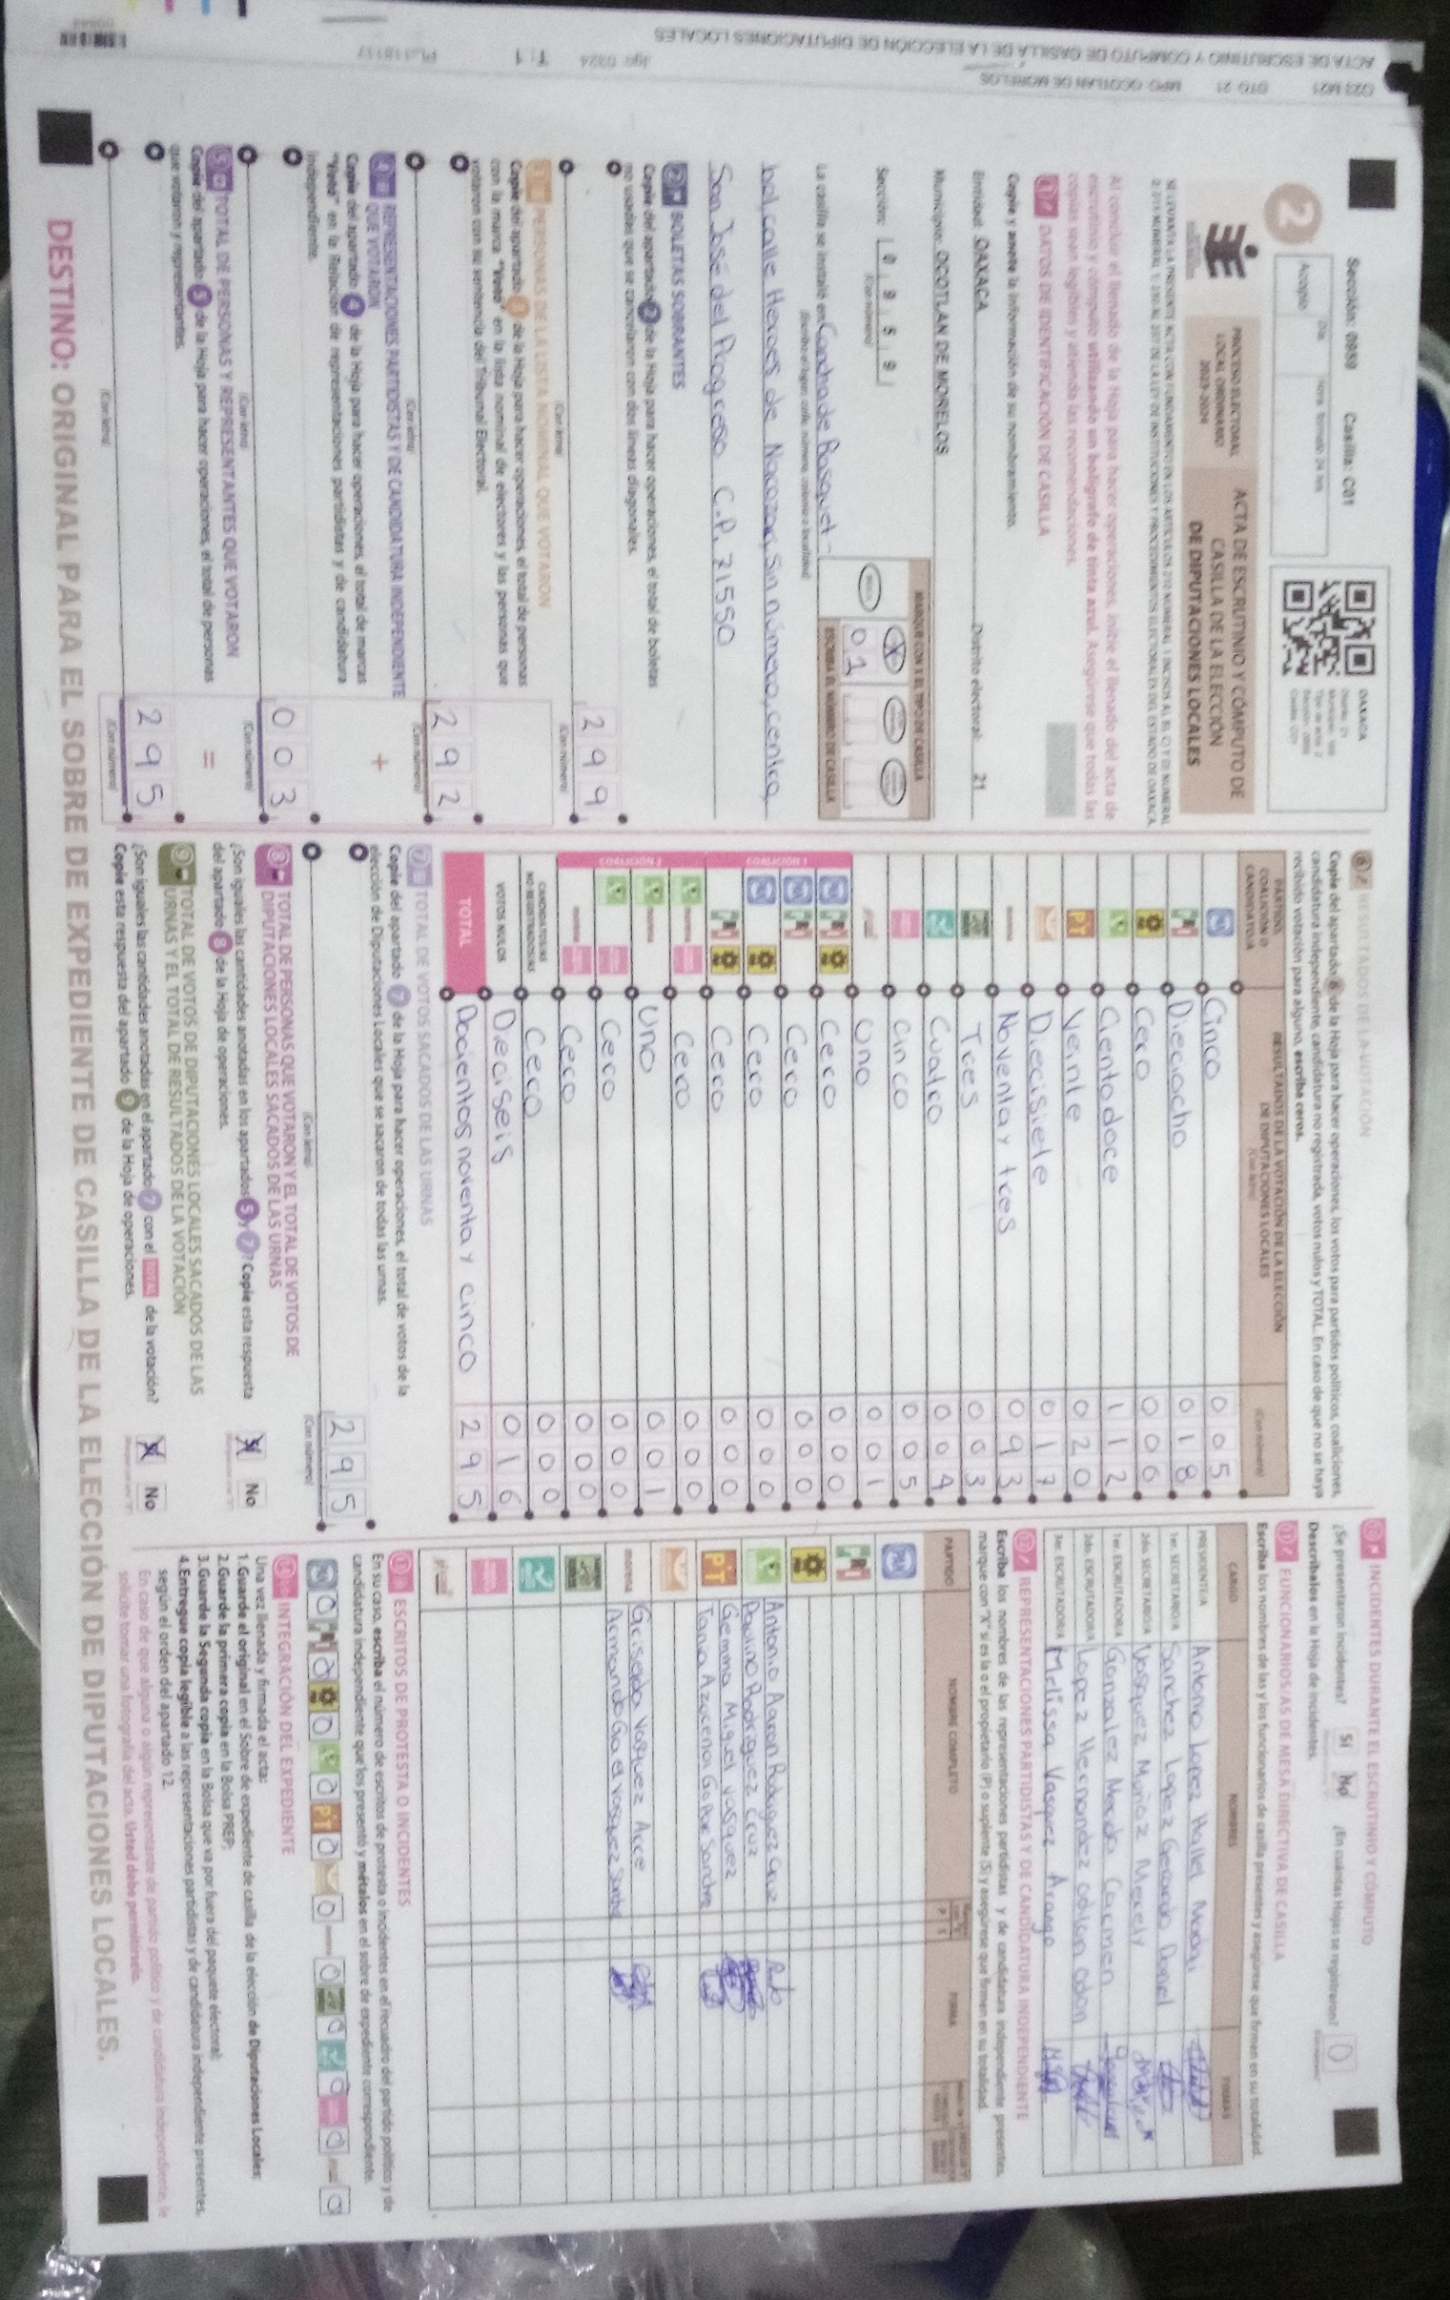 Sección: 0959 Casilla: C01
2
Acopio
PROCESO ELECTORAL
LOCAL ORDINARIO
2023-2024
ACTA DE ESCRUTINIO Y CÓMPUTO DE
CASILLA DE LA ELECCIÓN
DE DIPUTACIONES LOCALES
OAXACA
Al concluir el llenado de la Hoja para hacer operaciones, inicie el llenado del acta de
escrutinio y cómputo utilizando un bolígrafo de tinta azul. Asegúrese que todas las
copias sean legibles y atienda las recomendaciones.
1 DATOS DE IDENTIFICACIÓN DE CASILLA
Copie y anote la información de su nombramiento.
Entidad: OAXACA Distrito electoral: 21
Municipio: OCOTLAN DE MORELOS
Sección: 0 9 5 9
(Con número)
MARQUE CON X EL TIPO DE CASILLA
ESCRIBA EL NÚMERO DE CASILLA
0 1
La casilla se instaló en: Cancha de Basquet-
bol calle Heroes de Nacozari, sin número, centro
San José del Progreso C.P. 71550
2 BOLETAS SOBRANTES
Copie del apartado 2 de la Hoja para hacer operaciones, el total de boletas
no usadas que se cancelaron con dos líneas diagonales.
2 9 9
(Con letra) (Con número)
3 PERSONAS DE LA LISTA NOMINAL QUE VOTARON
Copie del apartado 3 de la Hoja para hacer operaciones, el total de personas
con la marca "Votó" en la lista nominal de electores y las personas que
votaron con su sentencia del Tribunal Electoral.
2 9 2
(Con letra) (Con número)
4 REPRESENTACIONES PARTIDISTAS Y DE CANDIDATURA INDEPENDIENTE
QUE VOTARON
+
Copie del apartado 4 de la Hoja para hacer operaciones, el total de marcas
"Votó" en la Relación de representaciones partidistas y de candidatura
independiente.
0 0 3
(Con letra) (Con número)
5 TOTAL DE PERSONAS Y REPRESENTANTES QUE VOTARON
=
Copie del apartado 5 de la Hoja para hacer operaciones, el total de personas
que votaron y representantes.
2 9 5
(Con letra) (Con número)
6 RESULTADOS DE LA VOTACIÓN
Copie del apartado 6 de la Hoja para hacer operaciones, los votos para partidos políticos, coaliciones,
candidatura independiente, candidatura no registrada, votos nulos y TOTAL. En caso de que no se haya
recibido votación para alguno, escriba ceros.
PARTIDO, COALICIÓN O CANDIDATURA
RESULTADOS DE LA VOTACIÓN DE LA ELECCIÓN
DE DIPUTACIONES LOCALES
(Con letra) (Con número)
PAN Cinco 0 0 5
PRI Dieciocho 0 1 8
Cero 0 0 0
Ciento doce 1 1 2
PT Veinte 0 2 0
Diecisiete 0 1 7
morena Noventa y tres 0 9 3
Tres 0 0 3
Cuatro 0 0 4
Cinco 0 0 5
Uno 0 0 1
COALICIÓN 1
Cero 0 0 0
Cero 0 0 0
Cero 0 0 0
Cero 0 0 0
COALICIÓN 2
Cero 0 0 0
Uno 0 0 1
Cero 0 0 0
Cero 0 0 0
CANDIDATOS/AS NO REGISTRADOS/AS Cero 0 0 0
VOTOS NULOS Dieciseis 0 1 6
TOTAL Docientos noventa y cinco 2 9 5
7 TOTAL DE VOTOS SACADOS DE LAS URNAS
Copie del apartado 7 de la Hoja para hacer operaciones, el total de votos de la
elección de Diputaciones Locales que se sacaron de todas las urnas.
2 9 5
(Con letra) (Con número)
8 TOTAL DE PERSONAS QUE VOTARON Y EL TOTAL DE VOTOS DE
DIPUTACIONES LOCALES SACADOS DE LAS URNAS
¿Son iguales las cantidades anotadas en los apartados 5 y 7? Copie esta respuesta
del apartado 8 de la Hoja de operaciones.
Sí No
9 TOTAL DE VOTOS DE DIPUTACIONES LOCALES SACADOS DE LAS
URNAS Y EL TOTAL DE RESULTADOS DE LA VOTACIÓN
¿Son iguales las cantidades anotadas en el apartado 7 con el TOTAL de la votación?
Copie esta respuesta del apartado 9 de la Hoja de operaciones.
Sí No
10 INCIDENTES DURANTE EL ESCRUTINIO Y CÓMPUTO
¿Se presentaron incidentes? Sí No ¿En cuántas Hojas se registraron? 0
Descríbalos en la Hoja de incidentes.
11 FUNCIONARIOS/AS DE MESA DIRECTIVA DE CASILLA
Escriba los nombres de las y los funcionarios de casilla presentes y asegúrese que firmen en su totalidad.
CARGO NOMBRES FIRMAS
PRESIDENTE/A Antonio Lopez Hallel Nooni
1er. SECRETARIO/A Sanchez Lopez Gerardo Daniel
2do. SECRETARIO/A Vasquez Muñoz Mayely
1er. ESCRUTADOR/A Gonzalez Merida Carmen
2do. ESCRUTADOR/A Lopez Hernandez Odilon Odon
3er. ESCRUTADOR/A Melissa Vasquez Arango
12 REPRESENTACIONES PARTIDISTAS Y DE CANDIDATURA INDEPENDIENTE
Escriba los nombres de las representaciones partidistas y de candidatura independiente presentes,
marque con "X" si es la o el propietario (P) o suplente (S) y asegúrese que firmen en su totalidad.
PARTIDO NOMBRE COMPLETO FIRMA
Antonio Aaron Rodriguez Cruz
Paulino Rodriguez Cruz
PT Gemma Miguel Vasquez
Tania Azucena Gopar Sanchez
morena Griselda Vasquez Arce
Armando Gael Vasquez Santos
13 ESCRITOS DE PROTESTA O INCIDENTES
En su caso, escriba el número de escritos de protesta o incidentes en el recuadro del partido político y de
candidatura independiente que los presentó y métalos en el sobre de expediente correspondiente.
0 0 0 0 0 0 0 0 0 0 0
14 INTEGRACIÓN DEL EXPEDIENTE
Una vez llenada y firmada el acta:
1.Guarde el original en el Sobre de expediente de casilla de la elección de Diputaciones Locales;
2.Guarde la primera copia en la Bolsa PREP;
3.Guarde la Segunda copia en la Bolsa que va por fuera del paquete electoral;
4.Entregue copia legible a las representaciones partidistas y de candidatura independiente presentes,
según el orden del apartado 12.
En caso de que alguna o algún representante de partido político y de candidatura independiente, le
solicite tomar una fotografía del acta, Usted debe permitírselo.
DESTINO: ORIGINAL PARA EL SOBRE DE EXPEDIENTE DE CASILLA DE LA ELECCIÓN DE DIPUTACIONES LOCALES.
DTO 21 MPO: OCOTLAN DE MORELOS
ACTA DE ESCRUTINIO Y COMPUTO DE CASILLA DE LA ELECCIÓN DE DIPUTACIONES LOCALES